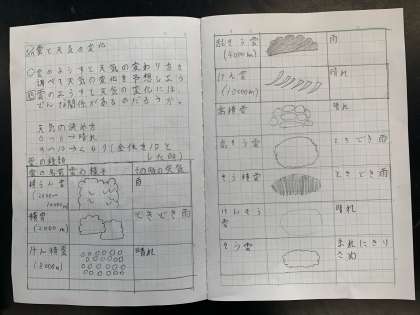 雲と天気の変化
雲のようすと天気の変わり方を
調べて天気の変化を予想しよう
雲のようすと天気の変化には、
どんな関係があるのだろうか。
天気の決め方
0〜8 晴れ
9〜10 くもり(全体を10と
した時)
雲の種類
雲の名前 雲の様子 その時の天気
積らん雲 雨
積雲 ときどき雨
(2000m)
けん積雲 晴れ
(8000m)
乱そう雲 雨
(4000m)
けん雲 晴れ
(10000m)
高積雲 晴れ
高そう雲 ときどき雨
そう積雲 ときどき雨
けんそう 晴れ
雲
そう雲 まれにきり
さめ